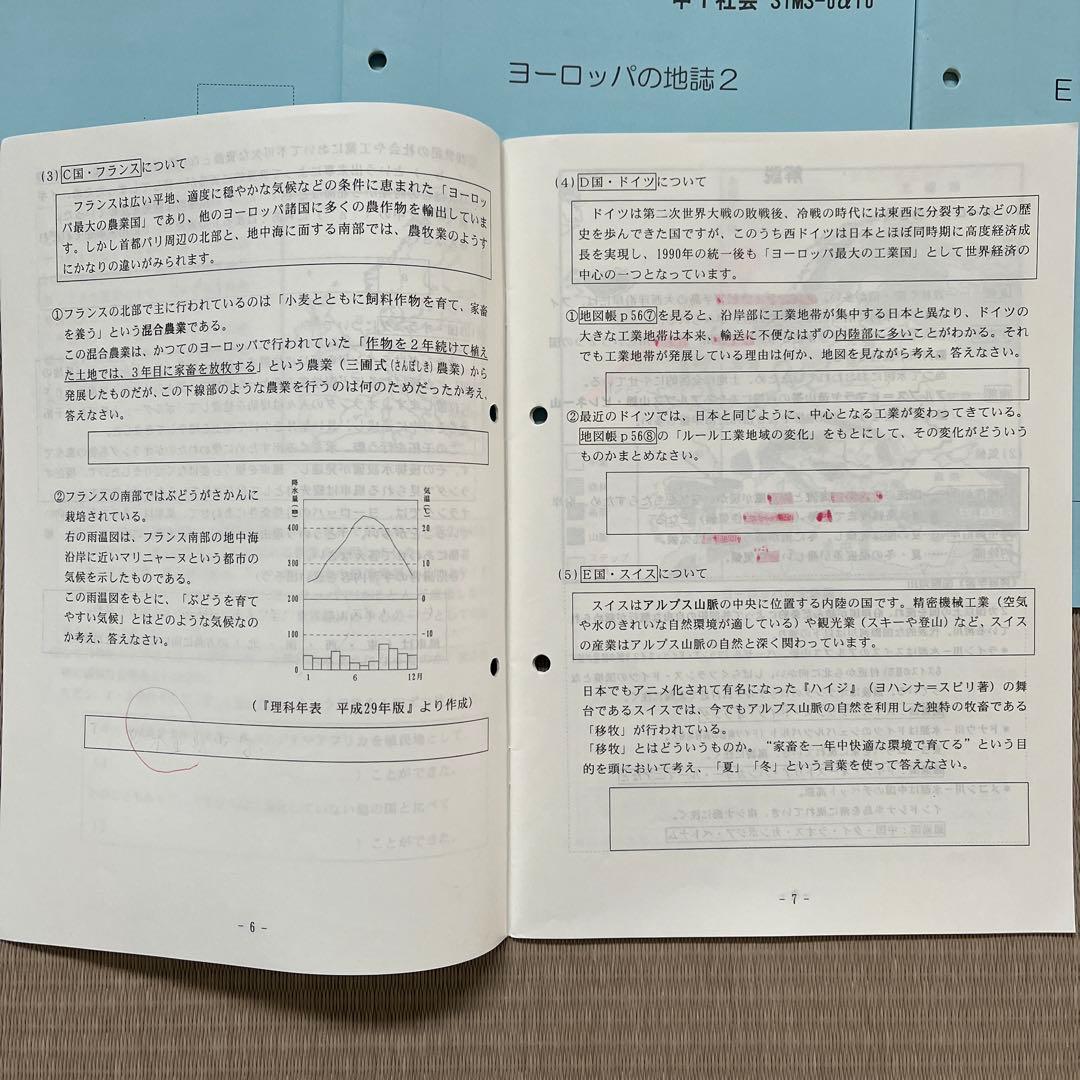 中1社会 SIMS-0&10
ヨーロッパの地誌2
E
(3) C国・フランスについて
フランスは広い平地、適度に穏やかな気候などの条件に恵まれた「ヨーロッ
パ最大の農業国」であり、他のヨーロッパ諸国に多くの農作物を輸出していま
す。しかし首都パリ周辺の北部と、地中海に面する南部では、農牧業のようす
にかなりの違いがみられます。
①フランスの北部で主に行われているのは「小麦とともに飼料作物を育て、家畜
を養う」という混合農業である。
この混合農業は、かつてのヨーロッパで行われていた「作物を2年続けて植え
た土地では、3年目に家畜を放牧する」という農業(三圃式(さんぽしき)農業)から
発展したものだが、この下線部のような農業を行うのは何のためだったか考え、
答えなさい。
②フランスの南部ではぶどうがさかんに
栽培されている。
右の雨温図は、フランス南部の地中海
沿岸に近いマリニャーヌという都市の
気候を示したものである。
この雨温図をもとに、「ぶどうを育て
やすい気候」とはどのような気候なの
か考え、答えなさい。
降水量(㎜)
気温(℃)
400
20
300
10
200
0
100
-10
1
6
12月
(『理科年表 平成29年版』より作成)
- 6 -
(4) D国・ドイツについて
ドイツは第二次世界大戦の敗戦後、冷戦の時代には東西に分裂するなどの歴
史を歩んできた国ですが、このうち西ドイツは日本とほぼ同時期に高度経済成
長を実現し、1990年の統一後も「ヨーロッパ最大の工業国」として世界経済の
中心の一つとなっています。
①地図帳p56⑦を見ると、沿岸部に工業地帯が集中する日本と異なり、ドイツの
大きな工業地帯は本来、輸送に不便なはずの内陸部に多いことがわかる。それ
でも工業地帯が発展している理由は何か、地図を見ながら考え、答えなさい。
②最近のドイツでは、日本と同じように、中心となる工業が変わってきている。
地図帳p56⑧の「ルール工業地域の変化」をもとにして、その変化がどういう
ものかまとめなさい。
(5) E国・スイスについて
スイスはアルプス山脈の中央に位置する内陸の国です。精密機械工業(空気
や水のきれいな自然環境が適している)や観光業(スキーや登山)など、スイス
の産業はアルプス山脈の自然と深く関わっています。
日本でもアニメ化されて有名になった『ハイジ』(ヨハンナ=スピリ著)の舞
台であるスイスでは、今でもアルプス山脈の自然を利用した独特の牧畜である
「移牧」が行われている。
「移牧」とはどういうものか。“家畜を一年中快適な環境で育てる”という目
的を頭において考え、「夏」「冬」という言葉を使って答えなさい。
- 7 -